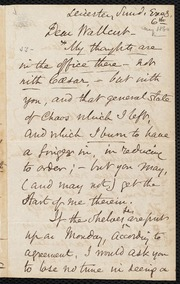 Leicester, Sund. Eve'g.
6th
Dear Wallcut-
"My thoughts are
in the office there - not
with Cæsar - but with
you, and that general state
of Chaos which I left,
and which I burn to have
a finger in, in reducing
to order; - but you may,
(and may not) get the
start of me therein.
If the shelves be put
up on Monday, according to
agreement, I would ask you
to lose no time in seeing a